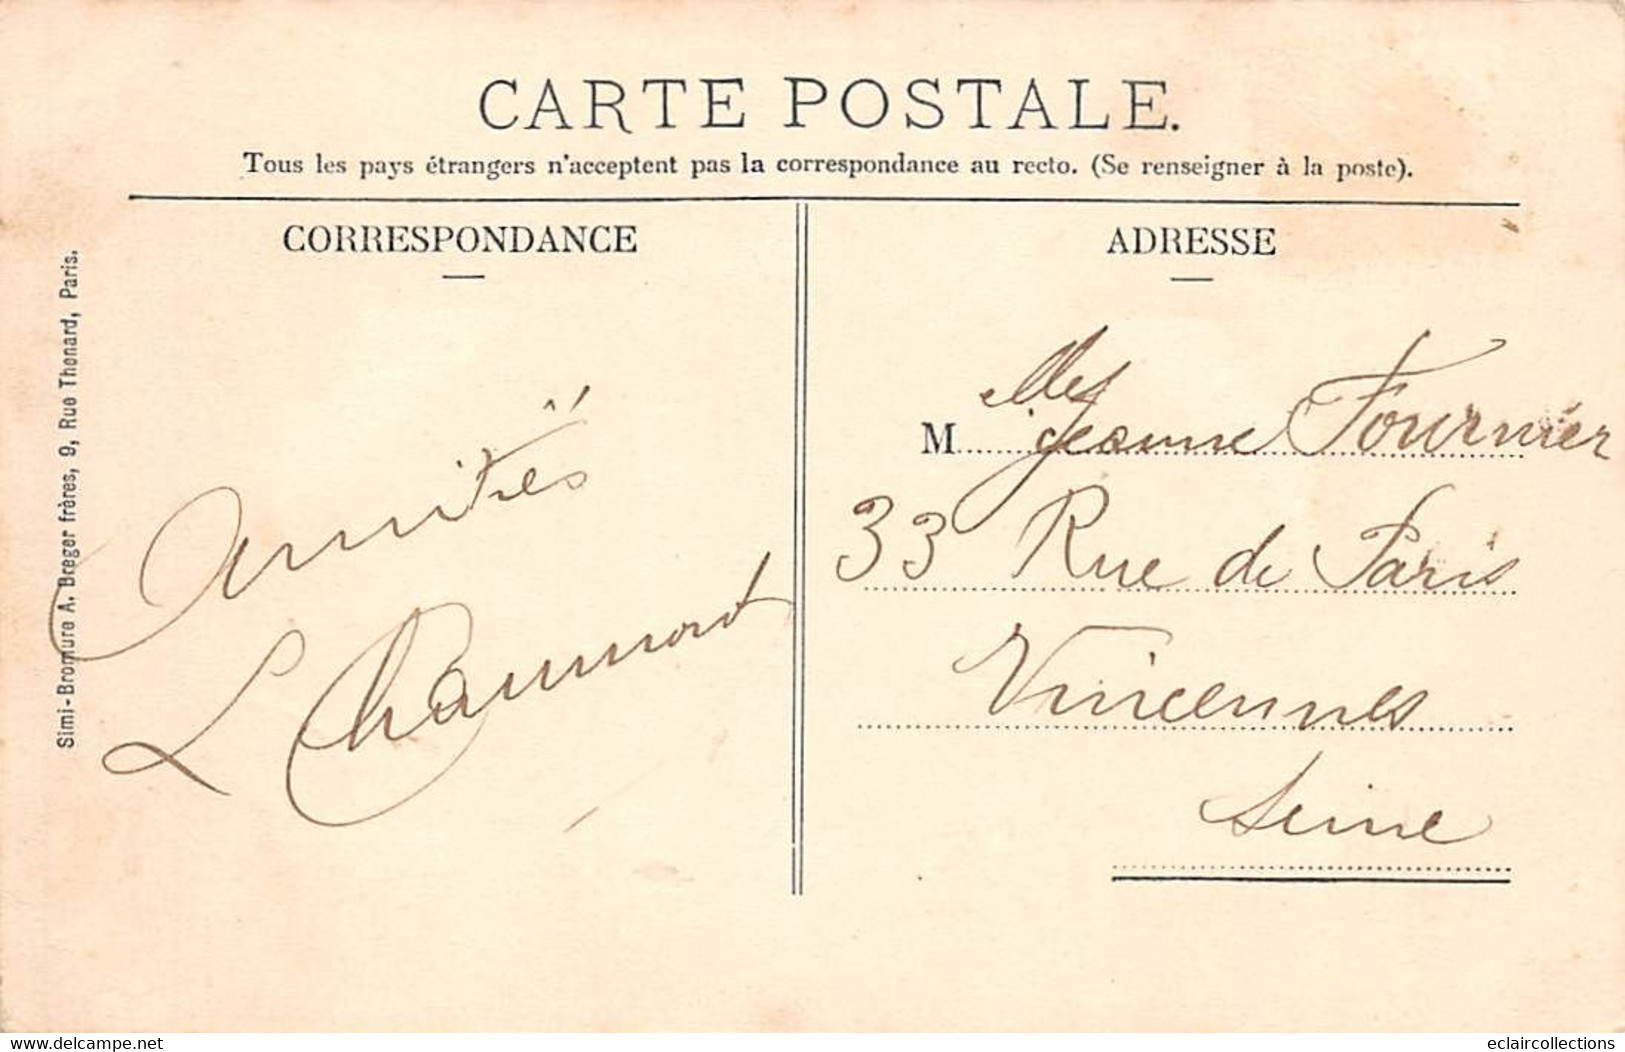 CARTE POSTALE.
Tous les pays étrangers n'acceptent pas la correspondance au recto. (Se renseigner à la poste).
CORRESPONDANCE
Simi-Bromure A. Breger frères, 9, Rue Thenard, Paris.
Amitiés
L Chaumont
ADRESSE
M elle Jeanne Fournier
33 Rue de Paris
Vincennes
Seine
delcampe.net
eclaircollections